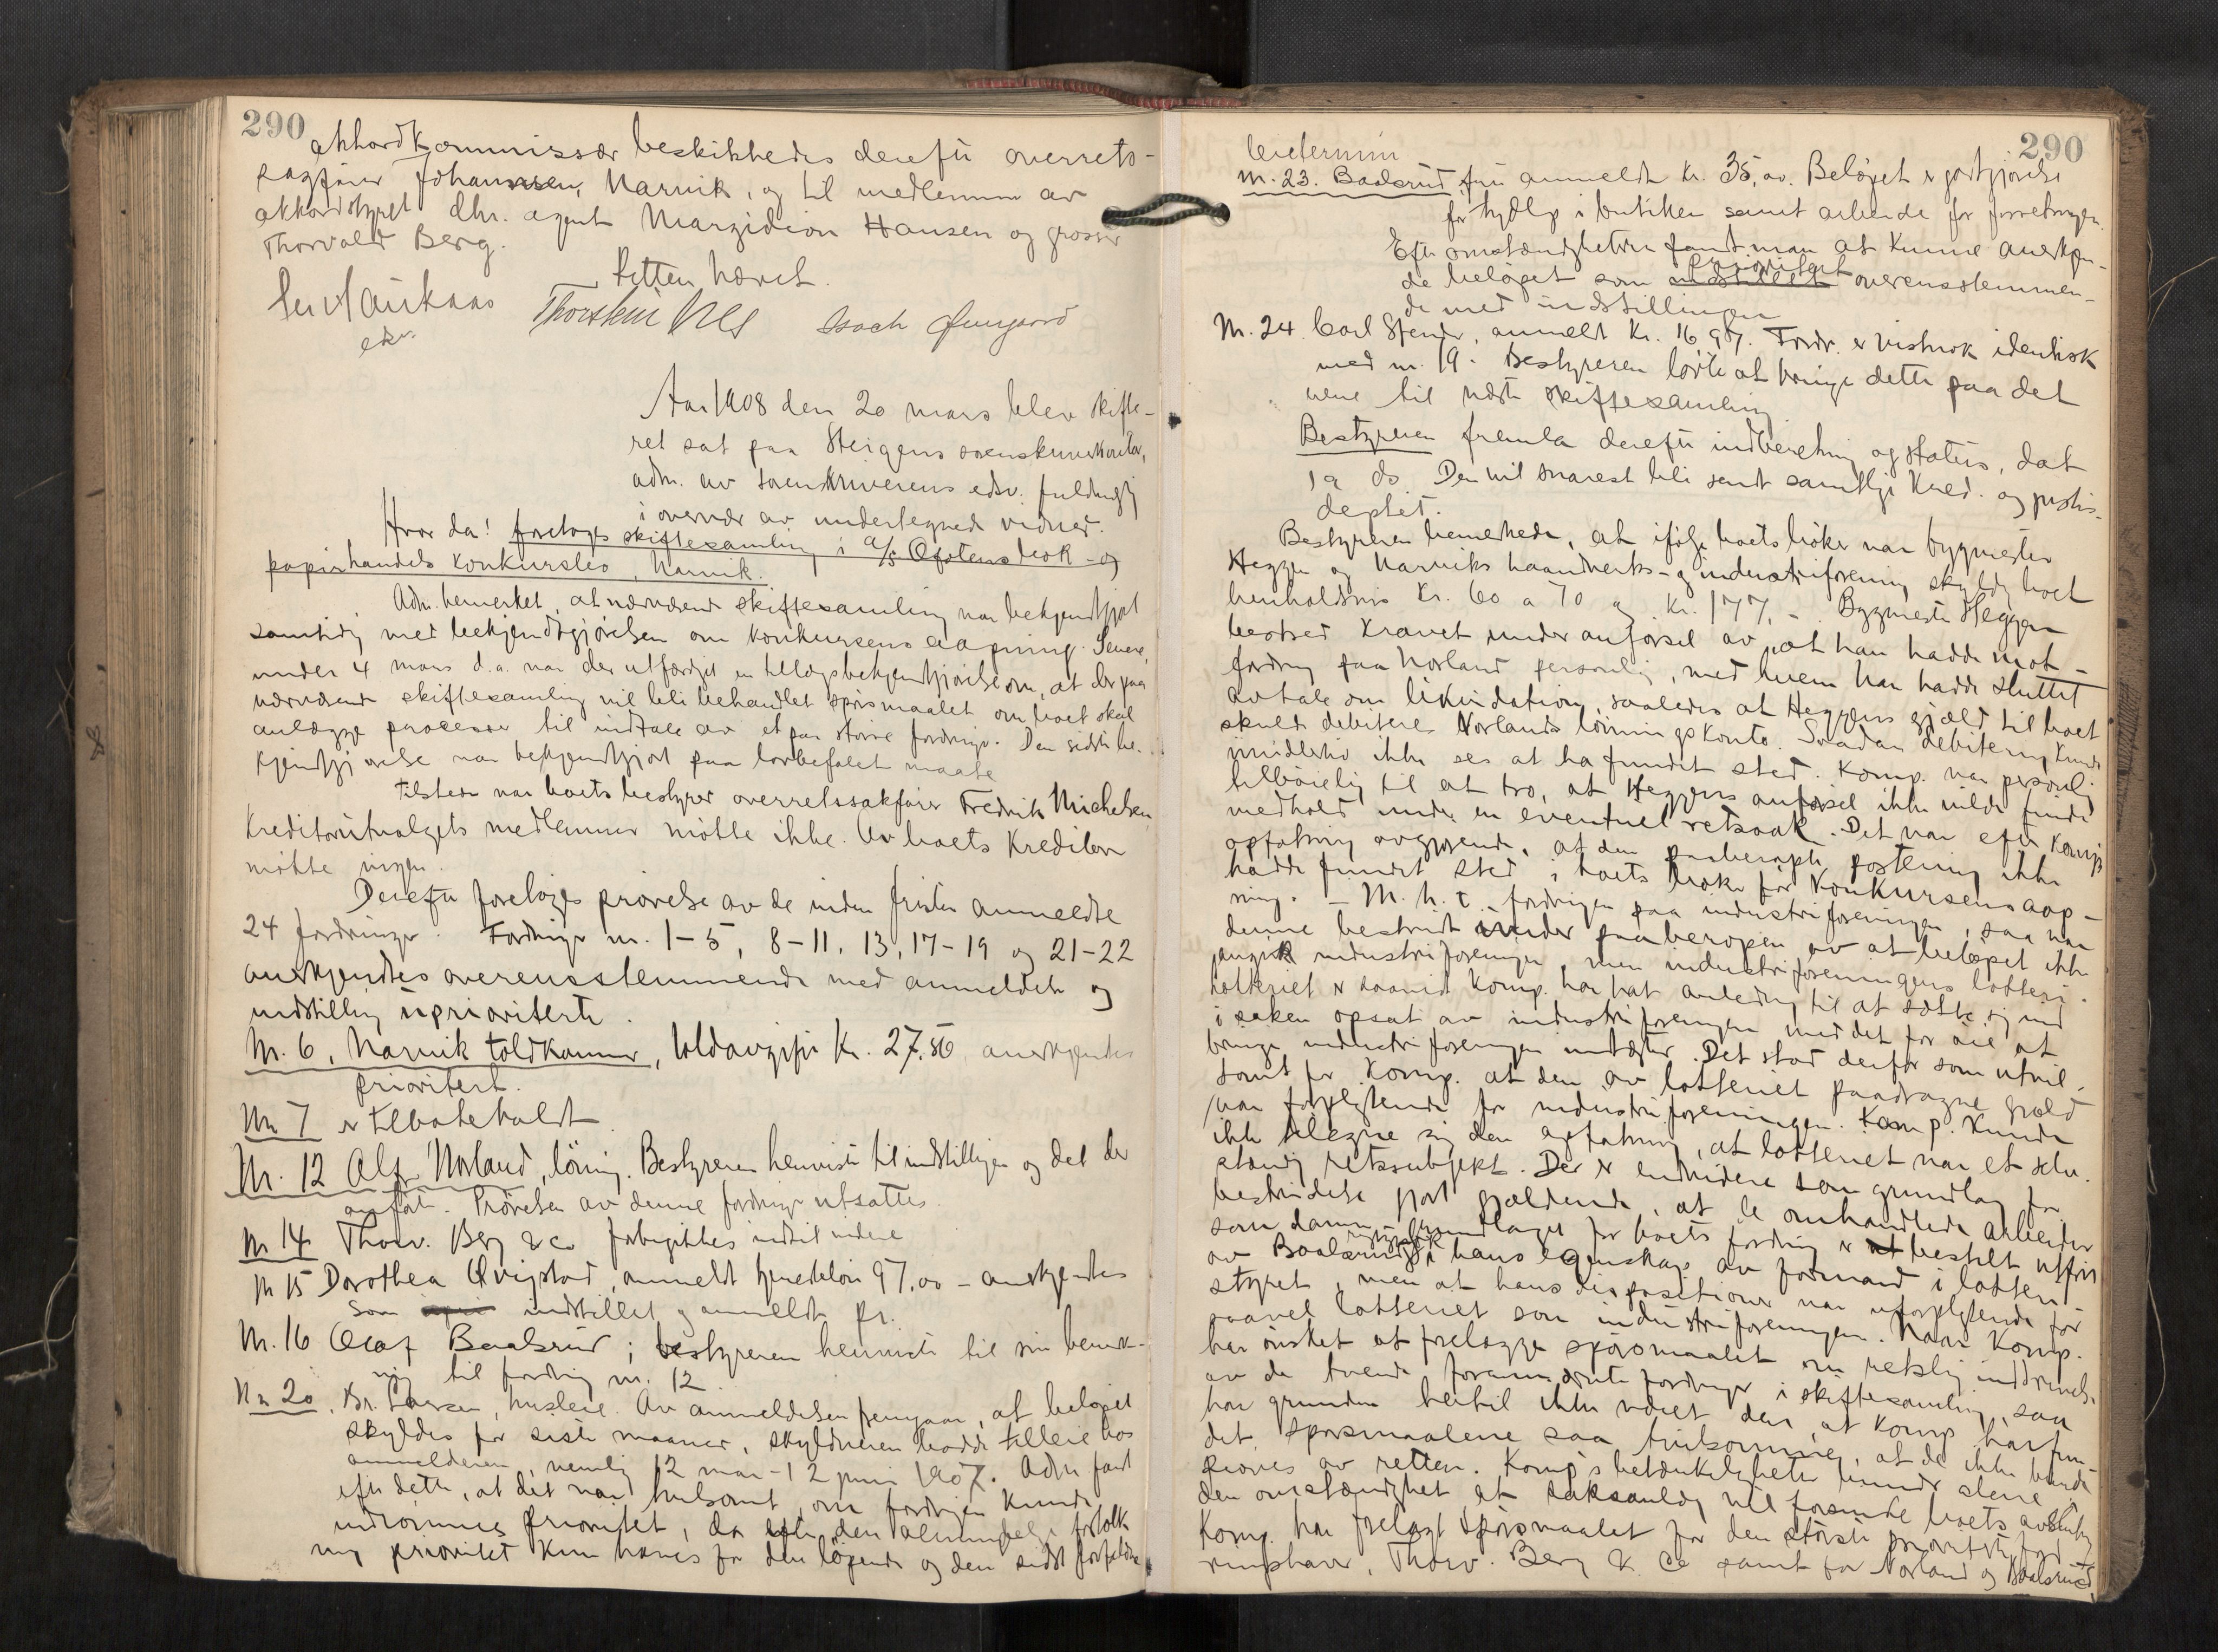 290
akkordkommissær beskikkedes derefter overrets-
sagfører Johanssen, Narvik, og til medlemmer av
akkordstyret dhr. agent Marzidion Hansen og grosser
Thorvald Berg.
Retten hævet.
Thorstein Isach
Aar 1908 den 20 mars blev skifte-
ret sat paa Steigens sorenskriverkontor,
adm. av sorenskriverens edsv. fuldmegtig
i overvær av undertegnede vidner.
Hvor da! foretoges skiftesamling i a/s Ofotens bok- og
papirhandels konkursbo, Narvik.
Adm. bemerket, at nærværende skiftesamling var bekjendtgjort
samtidig med bekjendtgjørelsen om konkursens aapning. Senere,
under 4 mars d.a. var der utfærdiget en tillægsbekjendtgjørelse om, at der paa
nærværende skiftesamling vil bli behandlet spørsmaalet om boet skal
anlægge processer til indtale av et par større fordringer. Den sidste be-
kjendtgjørelse var bekjendtgjort paa lovbefalet maate
Tilstede var boets bestyrer overretssakfører Fredrik Michelsen,
Kreditorutvalgets medlemmer møtte ikke. Av boets kreditorer
møtte ingen.
Derefter foretoges prøvelse av de inden fristen anmeldte
24 fordringer. Fordringer nr. 1-5, 8-11, 13, 17-19 og 21-22
anerkjendtes overensstemmende med anmeldelse og
indstilling uprioriterte.
Nr. 6, Narvik toldkammer, toldavgift Kr. 27.50, anerkjendtes
prioritert.
Nr 7 er tilbakekaldt.
Nr. 12 Alf Norland, løning. Bestyreren henviste til indstillingen og det der
anførte. Prøvelsen av denne fordring utsattes.
Nr 14 Thorv. Berg & co forbigikkes indtil videre
Nr 15 Dorothea Qvigstad, anmeldt tjenesteløn 97,00 - anerkjendtes
som indstillet og anmeldt pr.
Nr. 16 Olaf Baalsrud; bestyreren henviste til sin bemerk-
ning til fordring nr. 12.
Nr 20, Br. Larsen, husleie. Av anmeldelsen fremgaar, at beløpet
skyldes for siste maaneder, skyldneren hadde tilleie hos
anmelderen, nemlig 12 mar - 12 juni 1907. Adm fant
efter dette, at det var tvilsomt, om fordringen kunde
indrømmes prioritet, da efter den almindelige fortolk-
ning prioritet kun haves for den løpende og den sidst forfaldne
290
leietermin
Nr. 23. Baalsrud, fru anmeldt kr. 35,00. Beløpet er godtgjørelse
for hjælp i butiken samt arbeide for forretningen.
Efter omstændigheterne fandt man at kunne anerkjen-
de beløpet som prioritert overensstemmen-
de med indstillingen
Nr. 24. Carl Stender, anmeldt kr. 16,97. Fordr. er vistnok identisk
med nr. 19. Bestyreren lovte at bringe dette paa det
rene til næste skiftesamling
Bestyreren fremla derefter indberetning og status, dat
19 ds. Den vil snarest bli sendt samtlige kred. og justis-
deptet.
Bestyreren bemerkede, at ifølge boets bøker var bygmester
Heggen og Narviks haandverks- og industriforening skyldig boet
henholdsvis Kr. 60 a 70 og kr. 177,-. Bygmester Heggen
bestred kravet under anførsel av, at han hadde mot-
fordring paa Norland personlig, med hvem han hadde sluttet
avtale om likvidation, saaledes at Heggens gjæld til boet
skulde debiteres Norlands lønningskonto. Saadan debitering kunde
imidlertid ikke sees at ha fundet sted. Komp. var personl.
tilbøielig til at tro, at Heggens anførsel ikke vilde finde
medhold under en eventuel retssak. Det var efter Komp's
opfatning avgjørende, at den paaberopte postering ikke
hadde fundet sted i boets bøker før konkursens aap-
ning. - M. h. t. fordringen paa industriforeningen, saa var
denne bestridt under paaberopen av at beløpet ikke
angik industriforeningen, men industriforeningens lotteri.
Lotteriet er saavidt Komp. har hat anledning til at sætte sig ind
i saken opsat av industriforeningen med det for øie at
bringe industriforeningen indtægter. Det stod derfor som utvil-
somt for Komp. at den av lotteriet paadragne gjæld
var forpligtende for industriforeningen. Komp. kunde
ikke tilegne sig den opfatning, at lotteriet var et selv-
stændig retssubjekt. Der er endvidere som grundlag for
bestridelse gjort gjældende, at de omhandlede arbeider
som danner grundlaget for boets fordring er bestilt utført
av Baalsrud i hans egenskap av formand i lotteri-
styret, men at hans dispositioner var uforpligtende for
saavel lotteriet som industriforeningen. Naar Komp.
har ønsket at forelægge spørsmaalet om retslig inddrivelse
av de tvende forannævnte fordringer i skiftesamling, saa
har grunden hertil ikke været den, at Komp har fun-
det spørsmaalene saa tvilsomme, at de ikke burde
prøves av retten. Komp's betænkeligheter bunder alene i
den omstændighet at saksanlæg vil forsinke boets avslutning
Komp. har forelagt spørsmaalet for den største prioriterte ford-
ringshaver, Thorv. Berg & Co samt for Norland og Baalsrud,